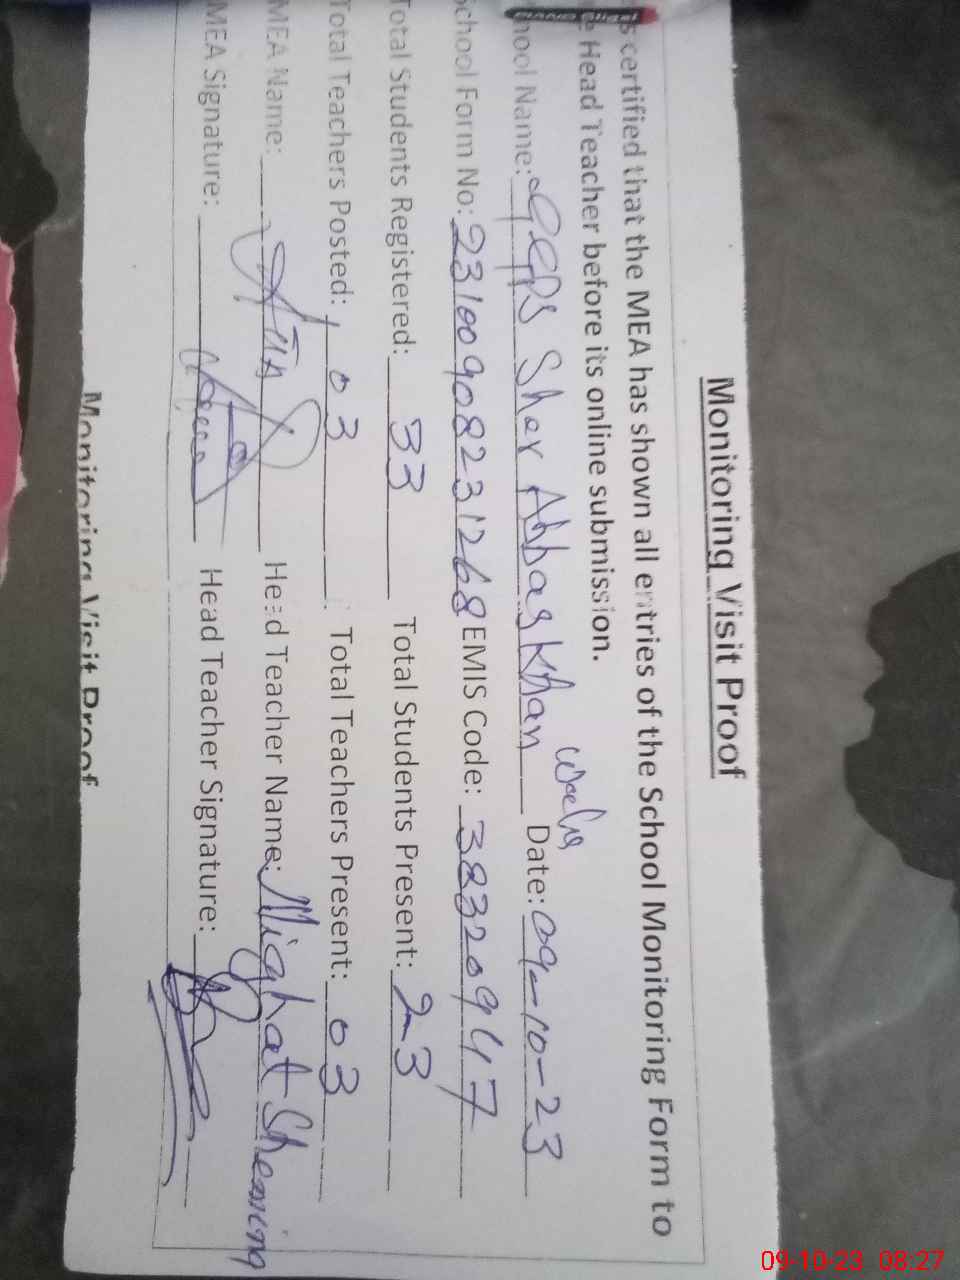 Monitoring Visit Proof
s certified that the MEA has shown all entries of the School Monitoring Form to
e Head Teacher before its online submission.
hool Name: GGPS Sher Abbas Khan Date: 09-10-23
School Form No: 23100908231268 EMIS Code: 38320947
Total Students Registered: 33 Total Students Present: 23
Total Teachers Posted: 03 Total Teachers Present: 03
MEA Name: Head Teacher Name: Mighat Sheming
MEA Signature: Head Teacher Signature:
Monitoring Visit Proof
09-10-23 08:27